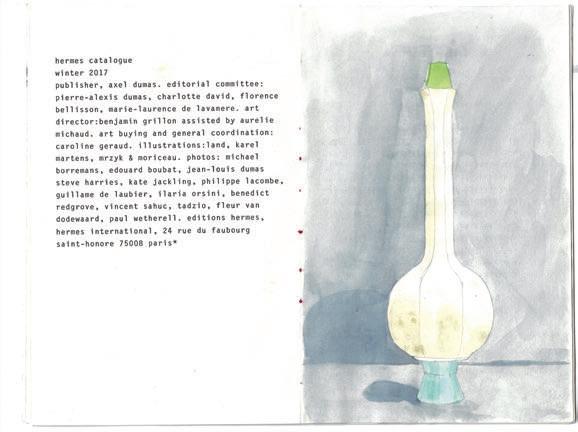 hermes catalogue
winter 2017
publisher, axel dumas. editorial committee:
pierre-alexis dumas, charlotte david, florence
bellisson, marie-laurence de lavanere. art
director:benjamin grillon assisted by aurelie
michaud. art buying and general coordination:
caroline geraud. illustrations:land, karel
martens, mrzyk & moriceau. photos: michael
borremans, edouard boubat, jean-louis dumas
steve harries, kate jackling, philippe lacombe,
guillame de laubier, ilaria orsini, benedict
redgrove, vincent sahuc, tadzio, fleur van
dodewaard, paul wetherell. editions hermes,
hermes international, 24 rue du faubourg
saint-honore 75008 paris*